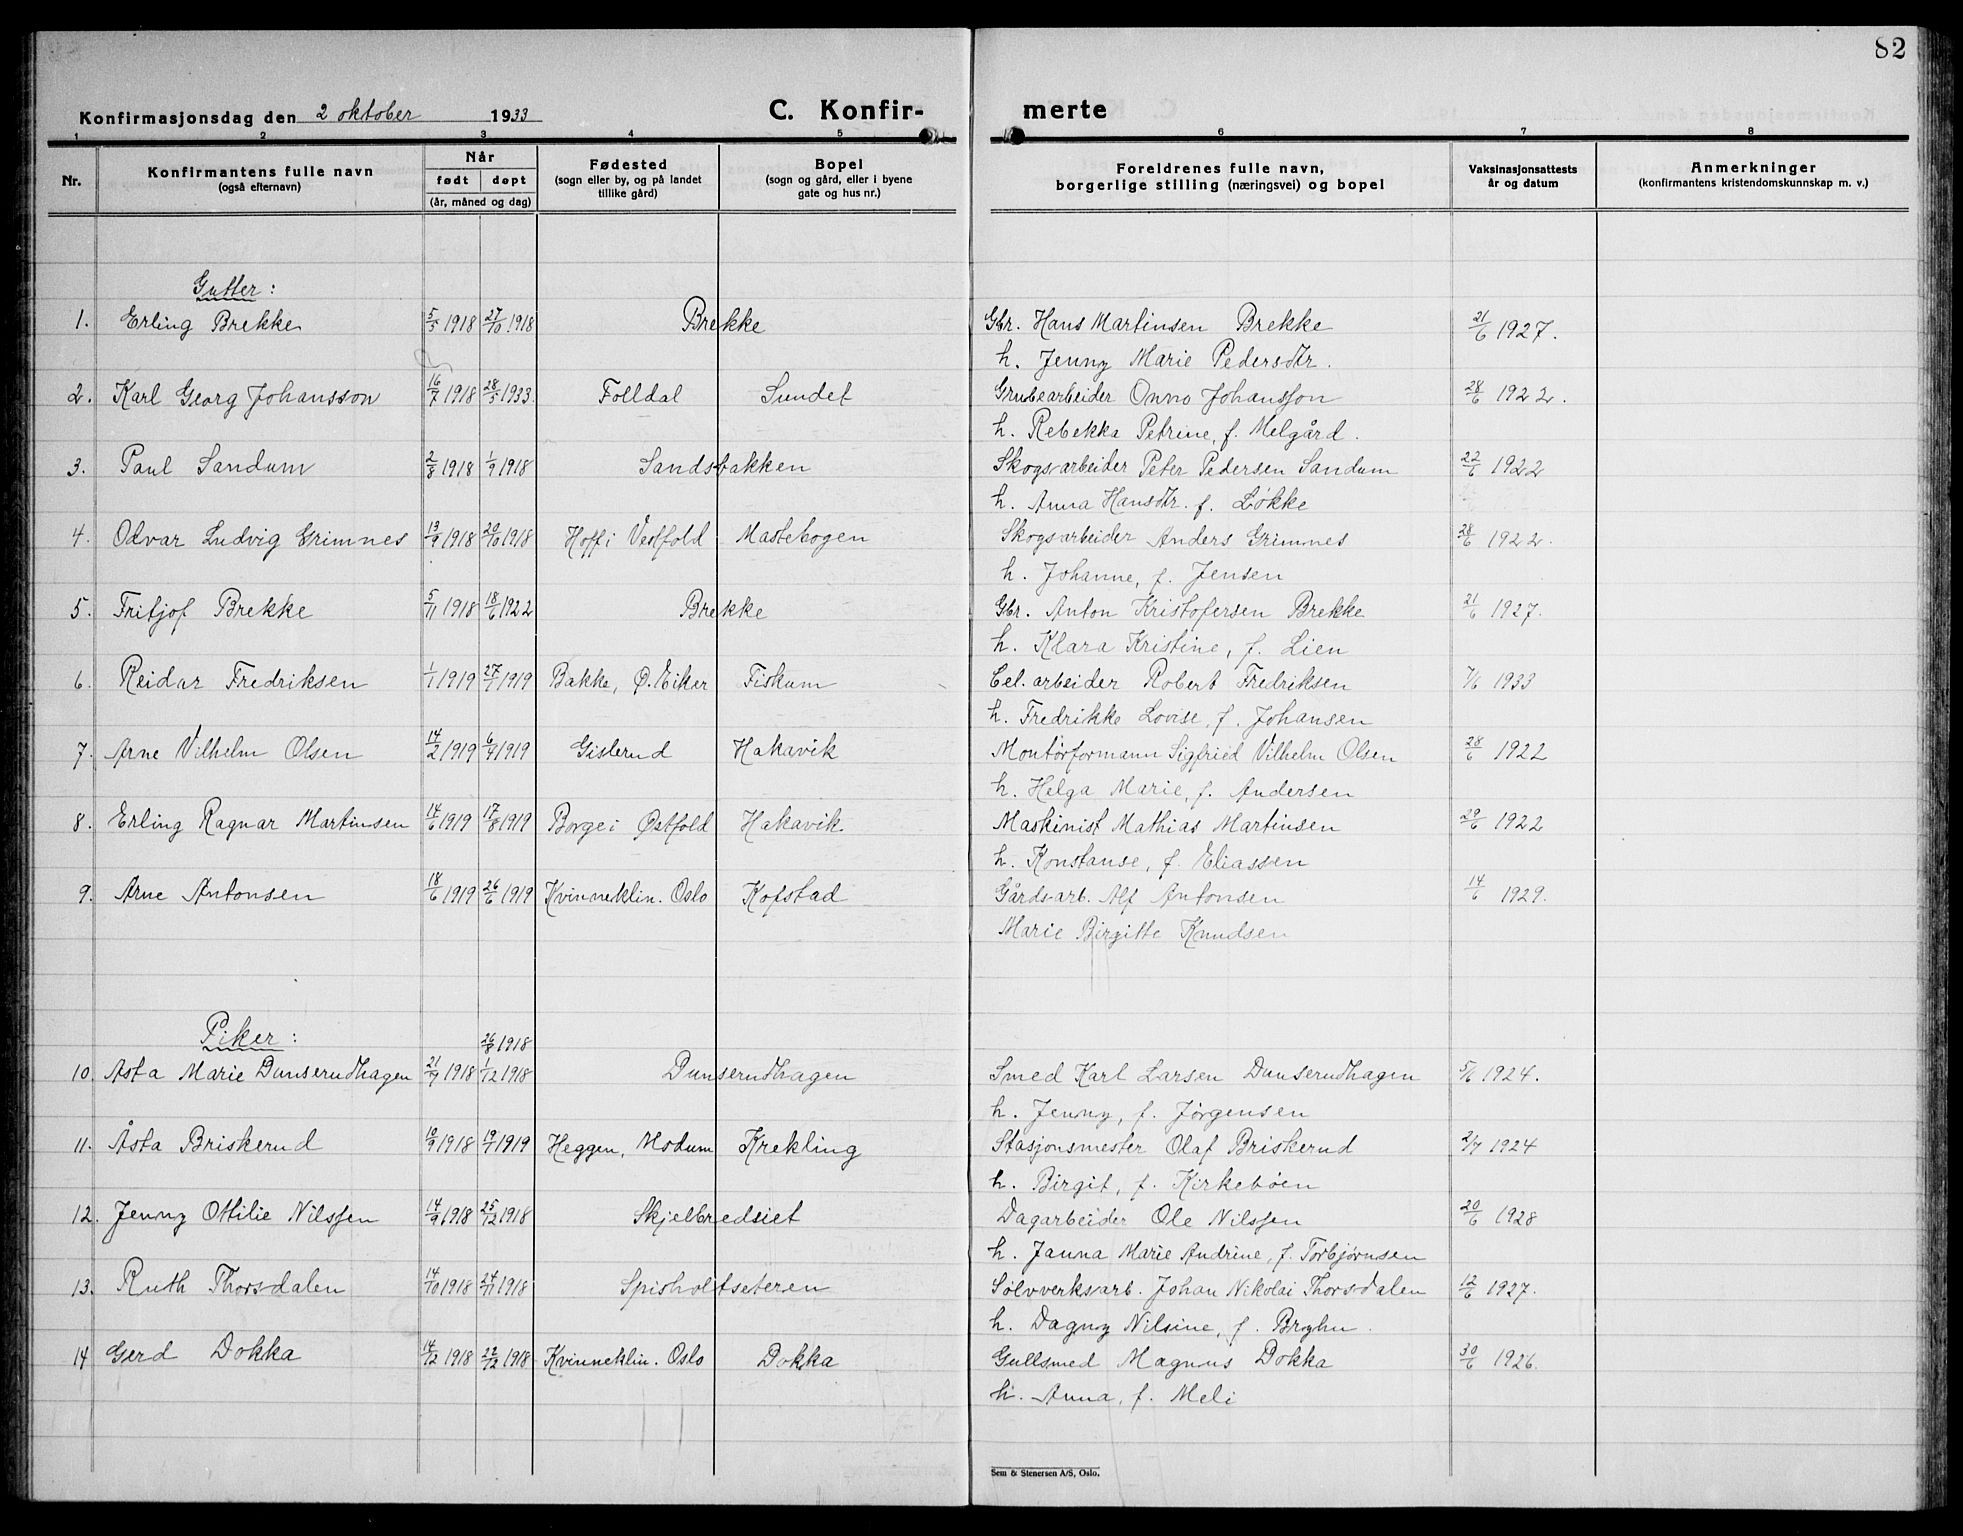 82
Konfirmasjonsdag den 2 oktober 1933 C. Konfir- merte
1 2 3 4 5 6 7 8
Nr. Konfirmantens fulle navn (også efternavn) Når født døpt (år, måned og dag) Fødested (sogn eller by, og på landet tillike gård) Bopel (sogn og gård, eller i byene gate og hus nr.) Foreldrenes fulle navn, borgerlige stilling (næringsvei) og bopel Vaksinasjonsattests år og datum Anmerkninger (konfirmantens kristendomskunnskap m. v.)
Gutter:
1. Erling Brekke 5/5 1918 27/10 1918 Brekke Gbr. Hans Martinsen Brekke 21/6 1927.
h. Jenny Marie Pedersdtr.
2. Karl Georg Johansson 16/7 1918 28/5 1933. Folldal Sundet Grubearbeider Onno Johansson 28/6 1922.
h. Rebekka Petrine, f. Melgård.
3. Paul Sandum 2/8 1918 1/9 1918 Sandsbakken Skogsarbeider Peter Pedersen Sandum 22/6 1922
h. Anna Hansdtr. f. Løkke
4. Odvar Ludvig Grimnes 13/9 1918 20/10 1918 Hoff i Vestfold Mastebogen Skogsarbeider Anders Grimnes 28/6 1922.
h. Johanne, f. Jensen
5. Fritjof Brekke 5/11 1918 18/6 1922 Brekke Gbr. Anton Kristofersen Brekke 21/6 1927.
h. Klara Kristine, f. Lien
6. Reidar Fredriksen 1/1 1919 27/7 1919 Bakke, Ø. Eiker Fiskum Cel. arbeider Robert Fredriksen 7/6 1933
h. Fredrikke Lovise, f. Johansen
7. Arne Vilhelm Olsen 14/2 1919 6/4 1919 Gislerud Hakavik Montørformann Sigfried Vilhelm Olsen 28/6 1922
h. Helga Marie, f. Andersen
8. Erling Ragnar Martinsen 14/6 1919 17/8 1919 Borge i Østfold Hakavik. Maskinist Mathias Martinsen 29/6 1922
h. Konstanse, f. Eliassen
9. Arne Antonsen 18/6 1919 26/6 1919 Kvinneklin. Oslo Kofstad Gårdsarb. Alf Antonsen 14/6 1929.
Marie Birgitte Knudsen
Piker: 26/8 1918
10. Asta Marie Dunserudhagen 21/9 1918 1/12 1918 Dunserudhagen Smed Karl Larsen Dunserudhagen 5/6 1924.
h. Jenny, f. Jørgensen
11. Åsta Briskerud 10/9 1918 19/1 1919 Heggen, Modum Krekling Stasjonsmester Olaf Briskerud 2/7 1924
h. Birgit, f. Kirkebøen
12. Jenny Ottilie Nilssen 14/9 1918 25/12 1918 Skjelbredsiet Dagarbeider Ole Nilssen 20/6 1928
h. Janna Marie Andrine, f. Torbjørnsen
13. Ruth Thorsdalen 14/10 1918 24/11 1918 Spisholtseteren Sølvverksarb. Johan Nikolai Thorsdalen 12/6 1927.
h. Dagny Nilsine, f. Bryhn.
14 Gerd Dokka 14/12 1918 22/12 1918 Kvinneklin. Oslo Dokka Gullsmed Magnus Dokka 30/6 1926.
h. Anna, f. Meli
Sem & Stenersen A/S, Oslo.